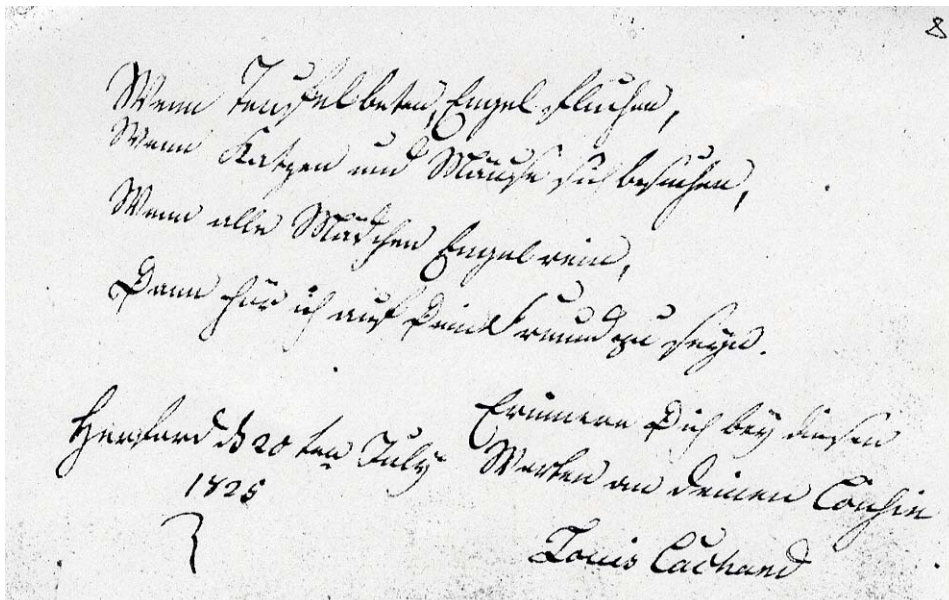 8
Wenn Teuffel beten, Engel fluchen,
Wenn Katzen und Mäuse sich besuchen,
Wenn alle Mädchen Engel rein,
Dann hör ich auf Dein Freund zu seyn.
Herford d 20ten July
1825
Erinnere Dich bey diesen
Worten an deinen Cousin
Louis